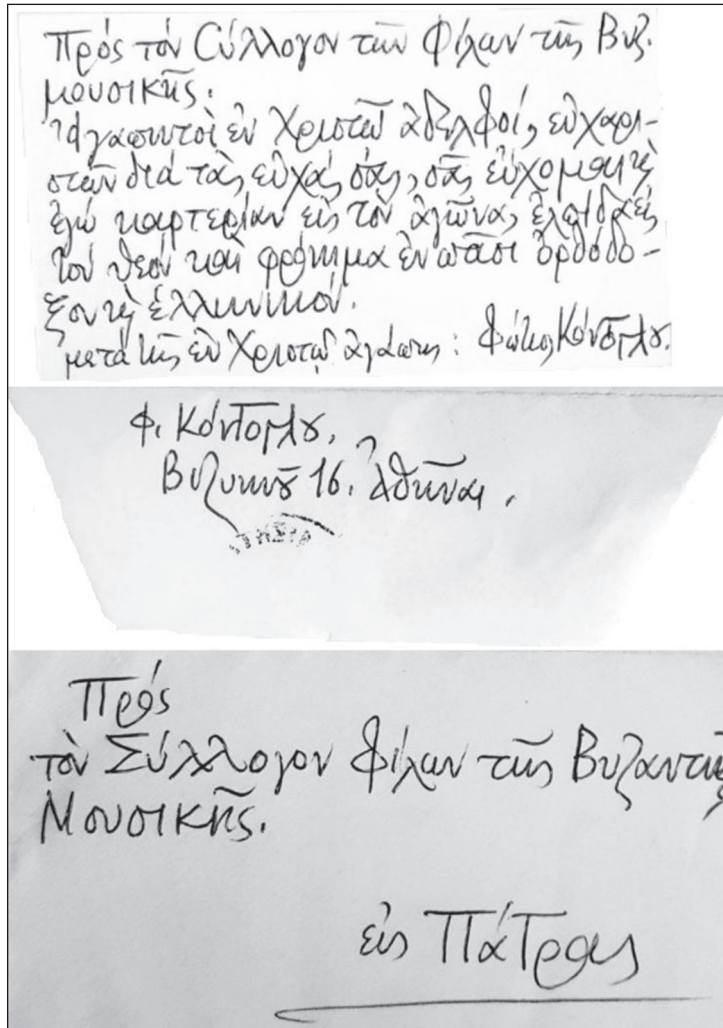 Πρός τόν Σύλλογον τῶν Φίλων τῆς Βυζ.
μουσικῆς.
Ἀγαπητοὶ ἐν Χριστῷ ἀδελφοί, εὐχαρι-
στῶν διὰ τὰς εὐχάς σας, σᾶς εὔχομαι κ̀
ἐγὼ καρτερίαν εἰς τὸν ἀγῶνα, ἐλπίδα εἰς
τὸν Θεόν καὶ φρόνημα ἐν πᾶσι ὀρθόδο-
ξον κ̀ ἑλληνικόν.
μετὰ τῆς ἐν Χριστῷ ἀγάπης: Φώτιος Κόντογλου.
Φ. Κόντογλου.
Βιζυηνοῦ 16. Ἀθῆναι.
Πρός
τὸν Σύλλογον Φίλων τῆς Βυζαντινῆς
Μουσικῆς.
εἰς Πάτρας